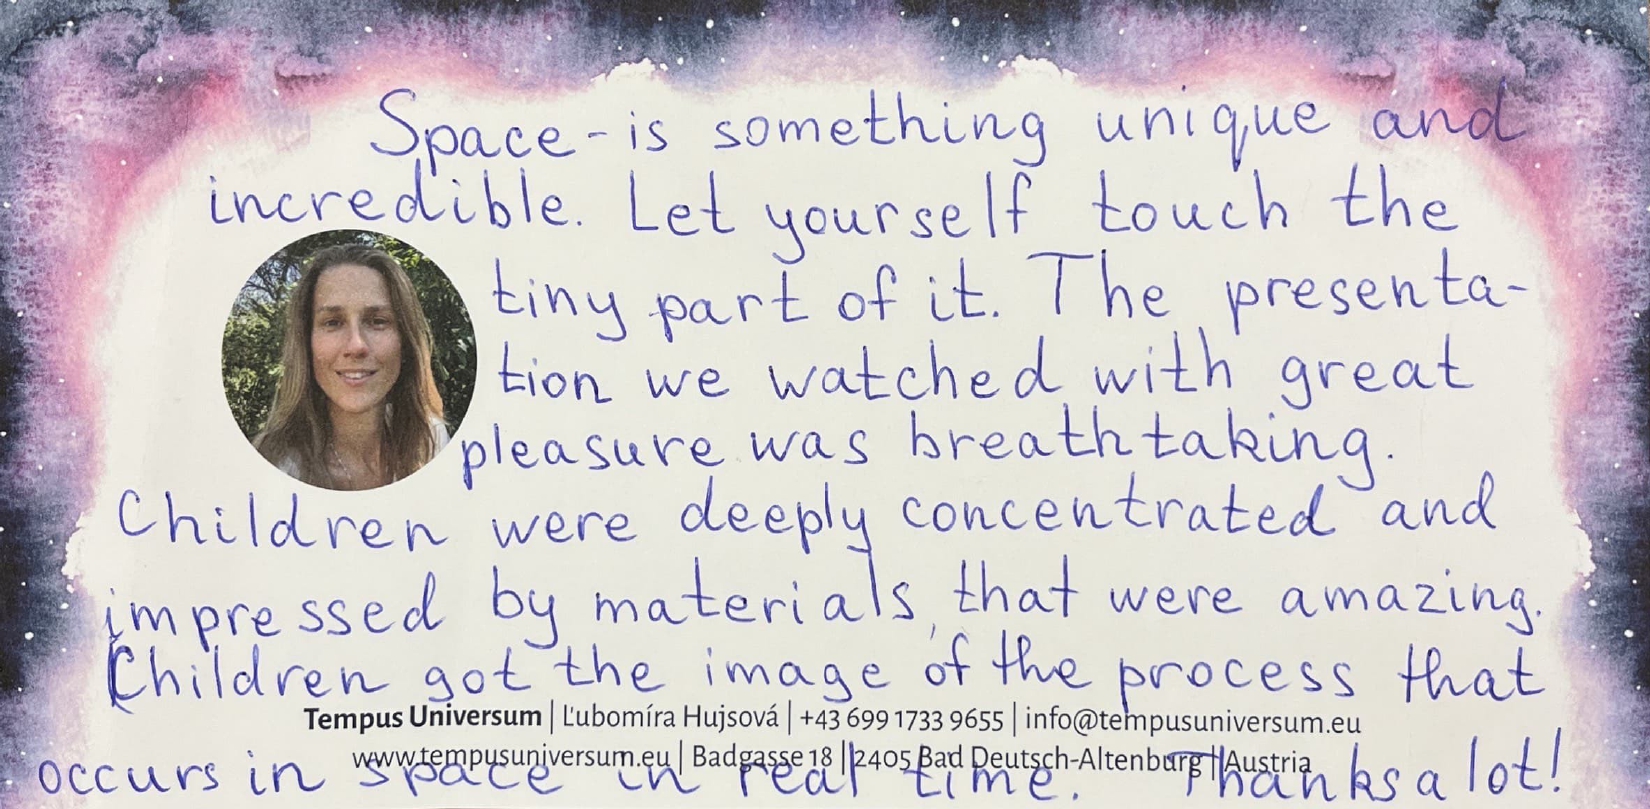 Space - is something unique and
incredible. Let yourself touch the
tiny part of it. The presenta-
tion we watched with great
pleasure was breathtaking.
Children were deeply concentrated and
impressed by materials, that were amazing.
Children got the image of the process that
Tempus Universum | Ľubomíra Hujsová | +43 699 1733 9655 | info@tempusuniversum.eu
www.tempusuniversum.eu | Badgasse 18 | 2405 Bad Deutsch-Altenburg | Austria
occurs in space in real time. Thanks a lot!